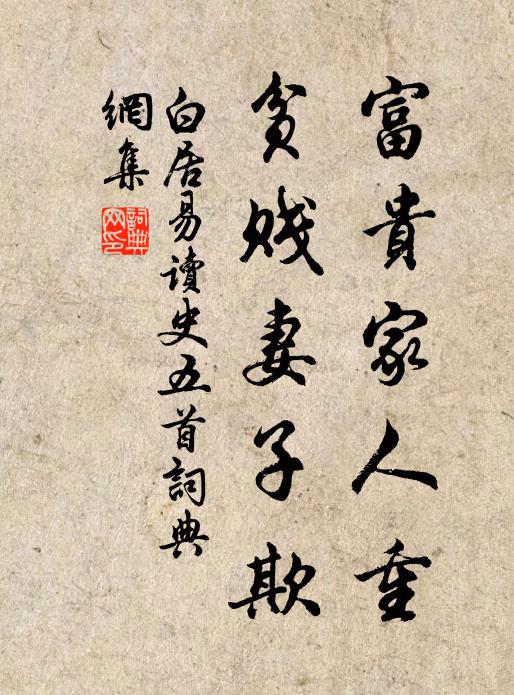 富貴家人重
貧賤妻子欺
白居易讀史五首詞典
網集
詞典
网印